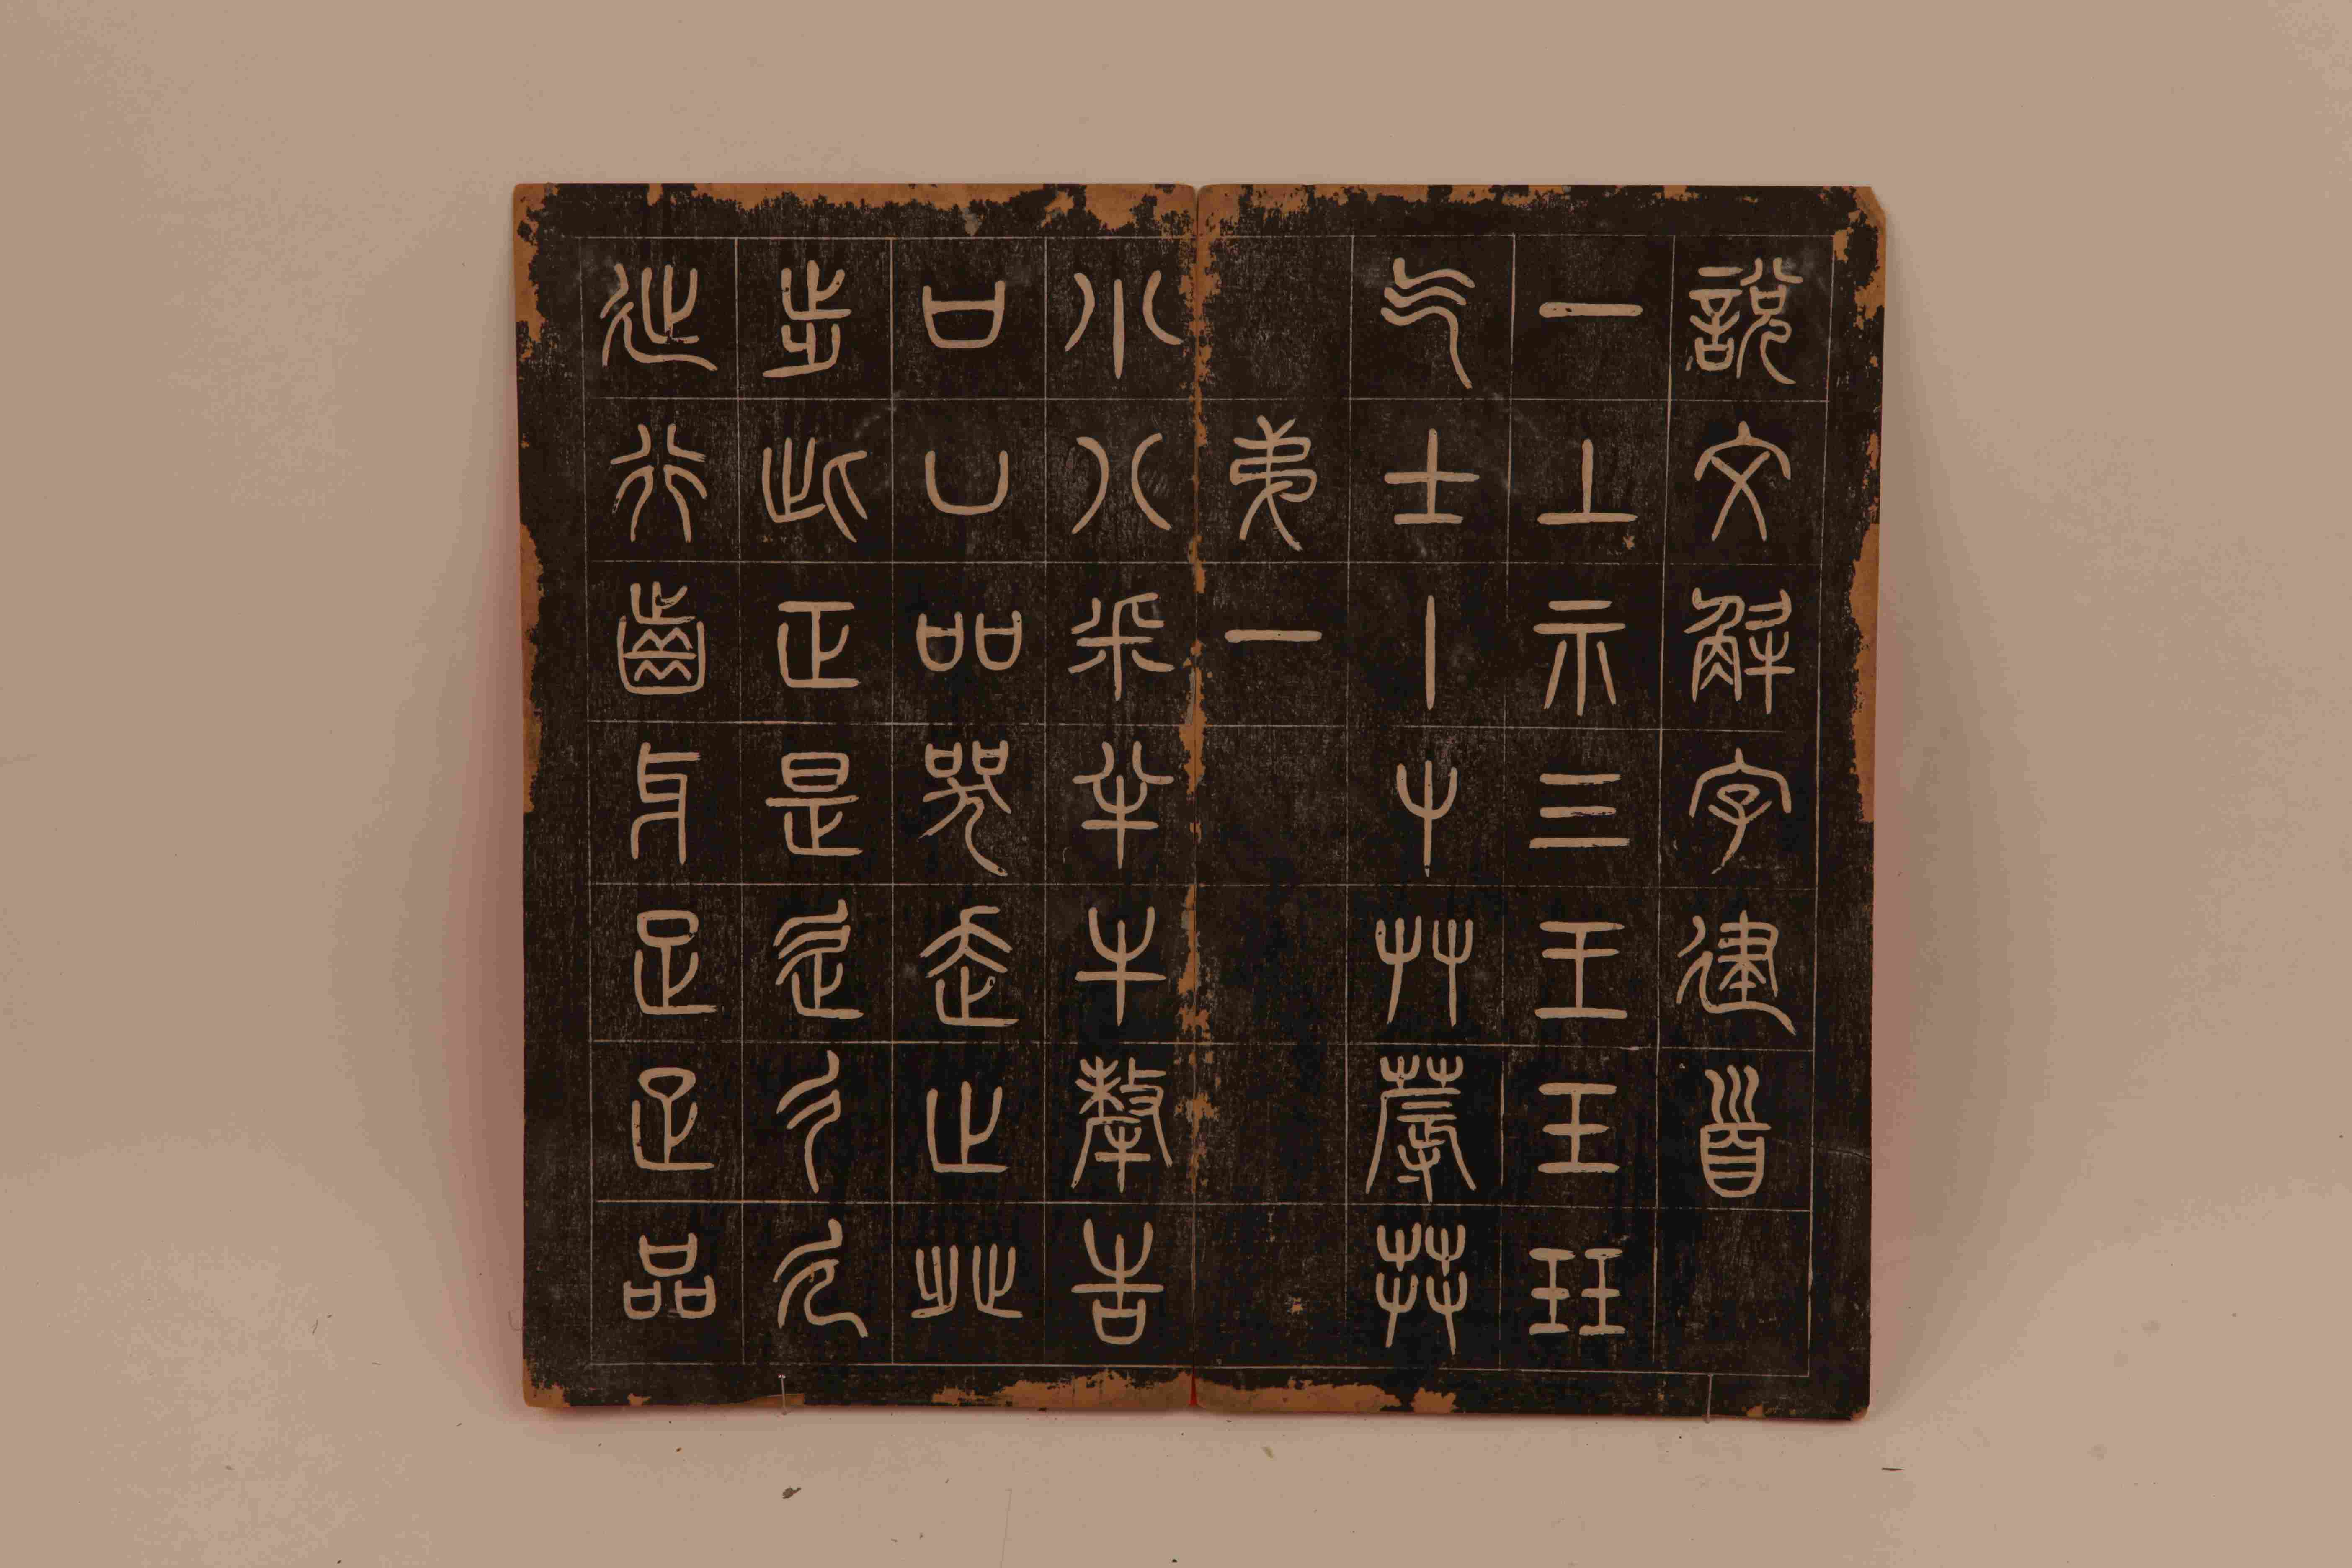 說文解字建首
一丄示三王玉玨
气士丨屮艸蓐茻
弟一
小八釆半牛犛告
口凵吅哭走止癶
步此正是辵彳廴
㢟行齒牙足疋品